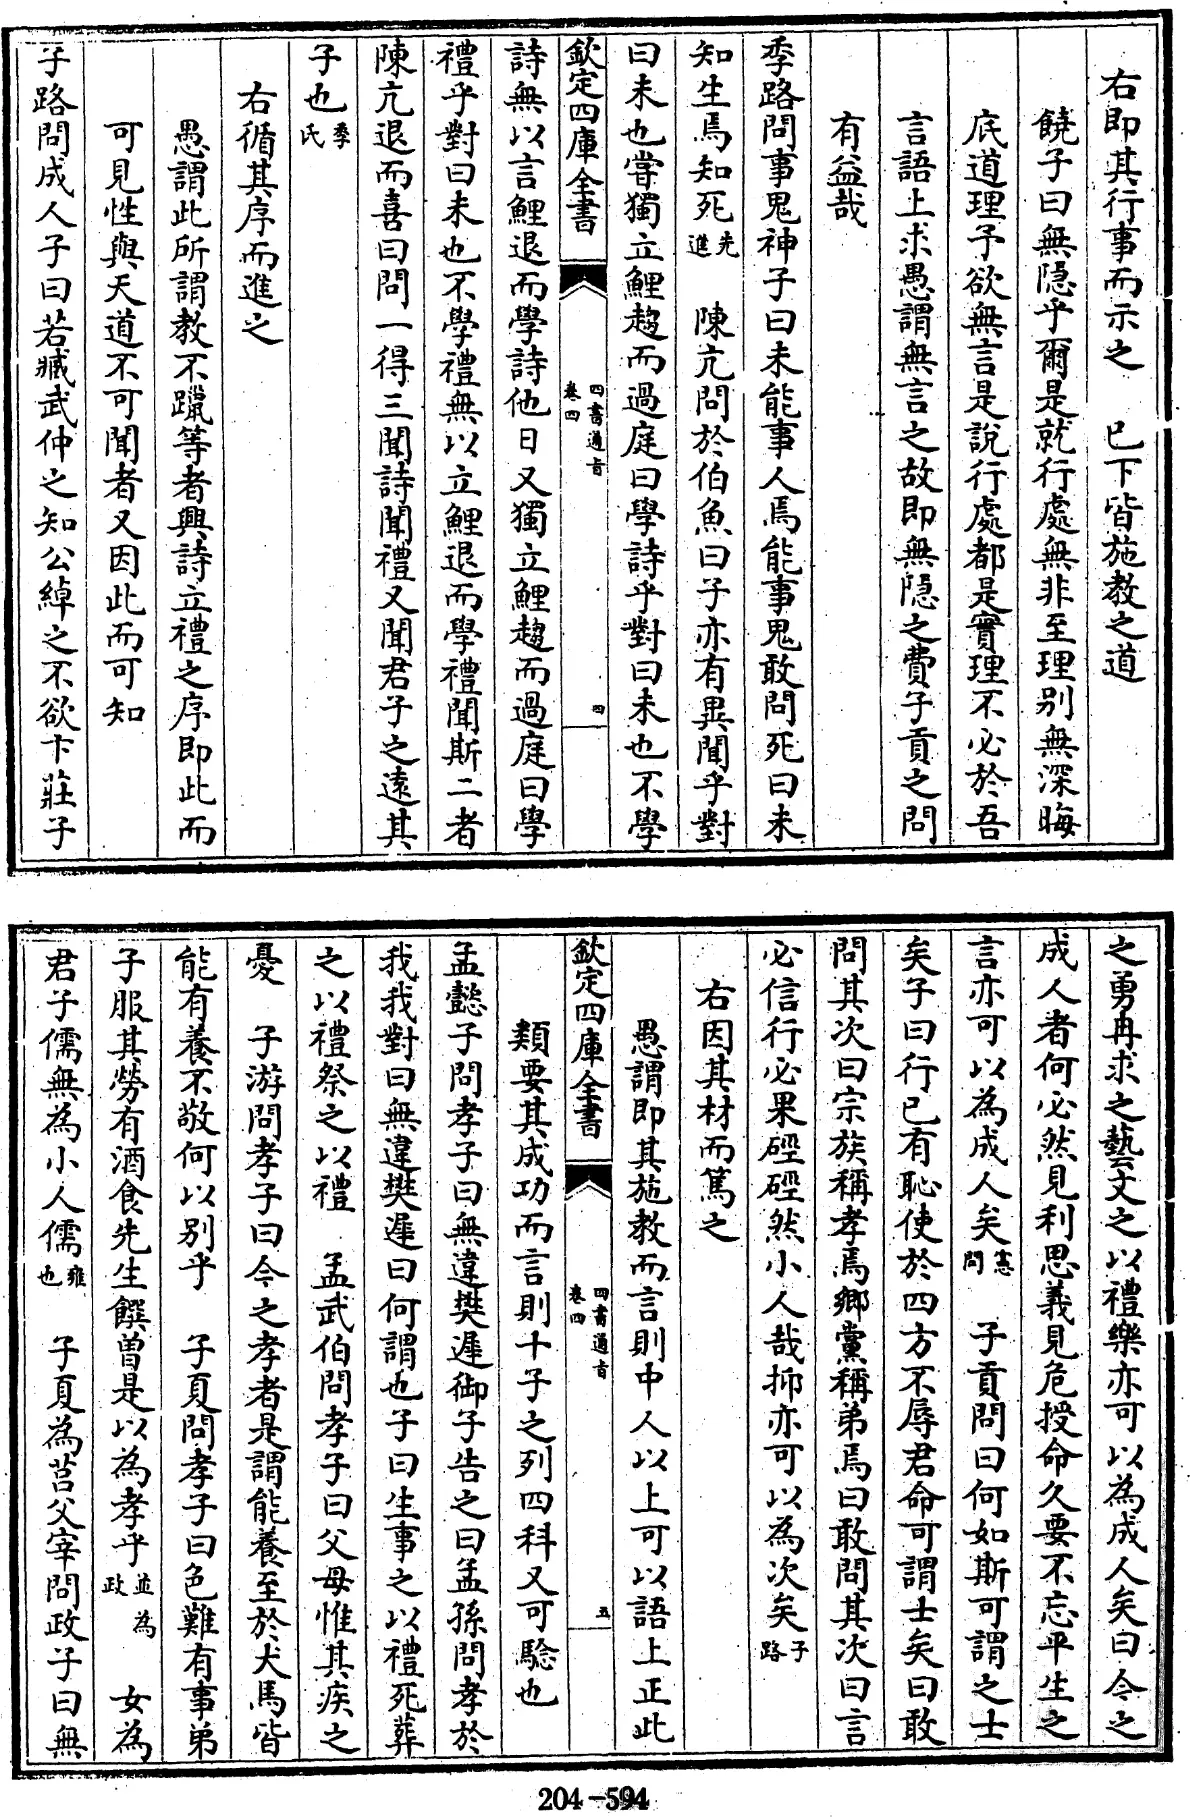 右即其行事而示之　已下皆施教之道
饒子曰無隠乎爾是就行處無非至理别無深晦
底道理予欲無言是說行處都是實理不必於吾
言語上求愚謂無言之故即無隠之費子貢之問
有益哉
季路問事鬼神子曰未能事人焉能事鬼敢問死曰未
知生焉知死先進　陳亢問於伯魚曰子亦有異聞乎對
曰未也嘗獨立鯉趨而過庭曰學詩乎對曰未也不學
欽定四庫全書　四書通旨卷四　四
詩無以言鯉退而學詩他日又獨立鯉趨而過庭曰學
禮乎對曰未也不學禮無以立鯉退而學禮聞斯二者
陳亢退而喜曰問一得三聞詩聞禮又聞君子之遠其
子也季氏
右循其序而進之
愚謂此所謂教不躐等者興詩立禮之序即此而
可見性與天道不可聞者又因此而可知
子路問成人子曰若臧武仲之知公綽之不欲卞莊子
之勇冉求之藝文之以禮樂亦可以為成人矣曰今之
成人者何必然見利思義見危授命久要不忘平生之
言亦可以為成人矣憲問　子貢問曰何如斯可謂之士
矣子曰行已有恥使於四方不辱君命可謂士矣曰敢
問其次曰宗族稱孝焉鄉黨稱弟焉曰敢問其次曰言
必信行必果硜硜然小人哉抑亦可以為次矣子路
右因其材而篤之
愚謂即其施教而言則中人以上可以語上正此
欽定四庫全書　四書通旨卷四　五
類要其成功而言則十子之列四科又可驗也
孟懿子問孝子曰無違樊遲御子告之曰孟孫問孝於
我我對曰無違樊遲曰何謂也子曰生事之以禮死葬
之以禮祭之以禮　孟武伯問孝子曰父母惟其疾之
憂　子游問孝子曰今之孝者是謂能養至於犬馬皆
能有養不敬何以别乎　子夏問孝子曰色難有事弟
子服其勞有酒食先生饌曽是以為孝乎並為政　女為
君子儒無為小人儒雍也　子夏為莒父宰問政子曰無
204-594